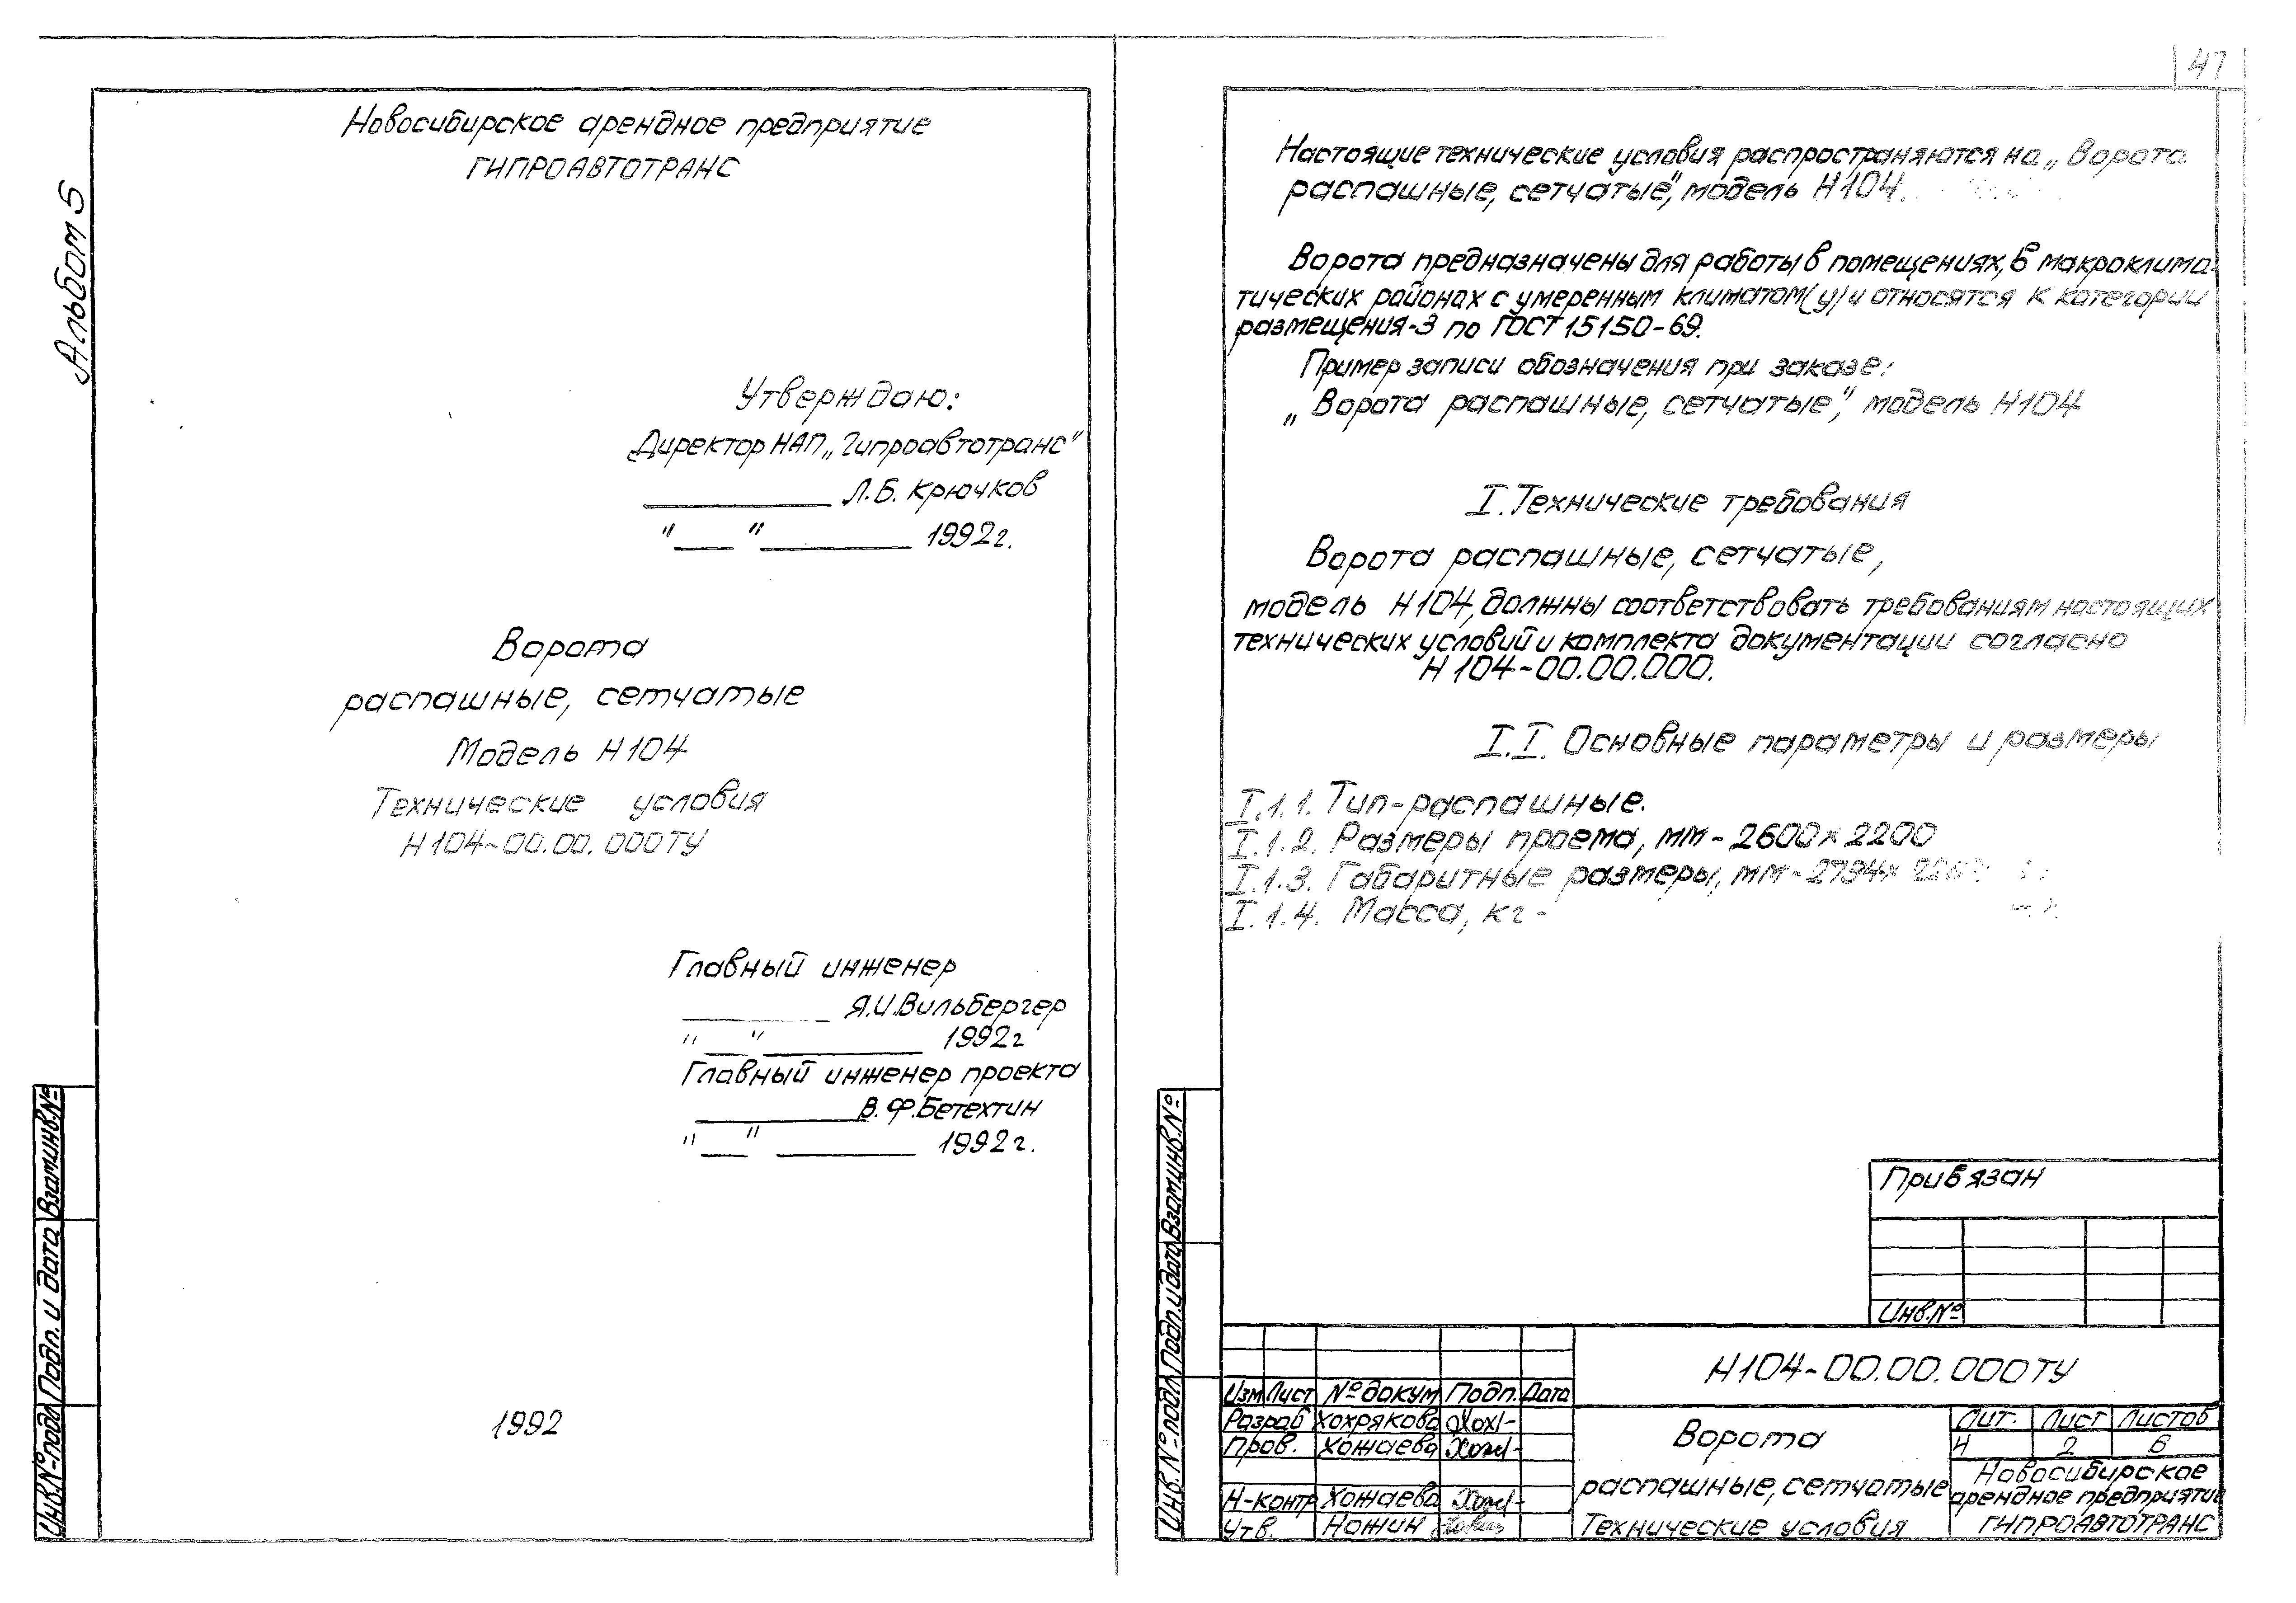 Альбом 5
Новосибирское арендное предприятие
ГИПРОАВТОТРАНС
Утверждаю:
Директор НАП „Гипроавтотранс"
Л.Б. Крючков
"__" ______ 1992г.
Ворота
распашные, сетчатые
Модель Н104
Технические условия
Н104-00.00.000ТУ
Главный инженер
Я.И.Вильбергер
"__" ______ 1992г
Главный инженер проекта
В.Ф.Бетехтин
"__" ______ 1992г.
1992
Взам.инв.№
Подп. и дата
Инв.№подл
47
Настоящие технические условия распространяются на „Ворота
распашные, сетчатые", модель Н104.
Ворота предназначены для работы в помещениях, в макроклима-
тических районах с умеренным климатом(у) и относятся к категории
размещения-3 по ГОСТ 15150-69.
Пример записи обозначения при заказе:
„Ворота распашные, сетчатые", модель Н104
I. Технические требования
Ворота распашные, сетчатые,
модель Н104, должны соответствовать требованиям настоящих
технических условий и комплекта документации согласно
Н104-00.00.000.
I.I. Основные параметры и размеры
I.1.1. Тип-распашные.
I.1.2. Размеры проема, мм - 2600×2200
I.1.3. Габаритные размеры, мм - 2734×
I.1.4. Масса, кг -
Взам.инв.№
Подп.и дата
Инв.№подл
Привязан
Инв.№
Н104-00.00.000ТУ
Изм Лист №докум Подп. Дата
Разраб Хохрякова
Пров. Хожаева
Н-контр Хожаева
Утв. Ножин
Ворота
распашные, сетчатые
Технические условия
Лит. Лист Листов
И 2 6
Новосибирское
арендное предприятие
ГИПРОАВТОТРАНС